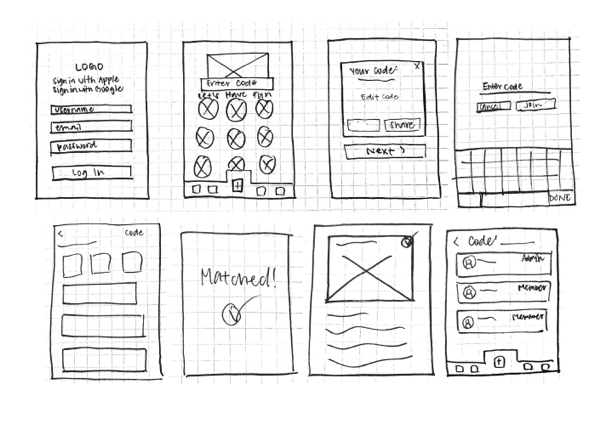 LOGO
Sign in with Apple
Sign in with Google
username
email
password
Log In
Enter Code
Let's Have Fun
Your Code:
X
Edit Code
Share
Next >
Enter code
Cancel
Join
DONE
< Code
Matched!
< Code:
Admin
Member
Member